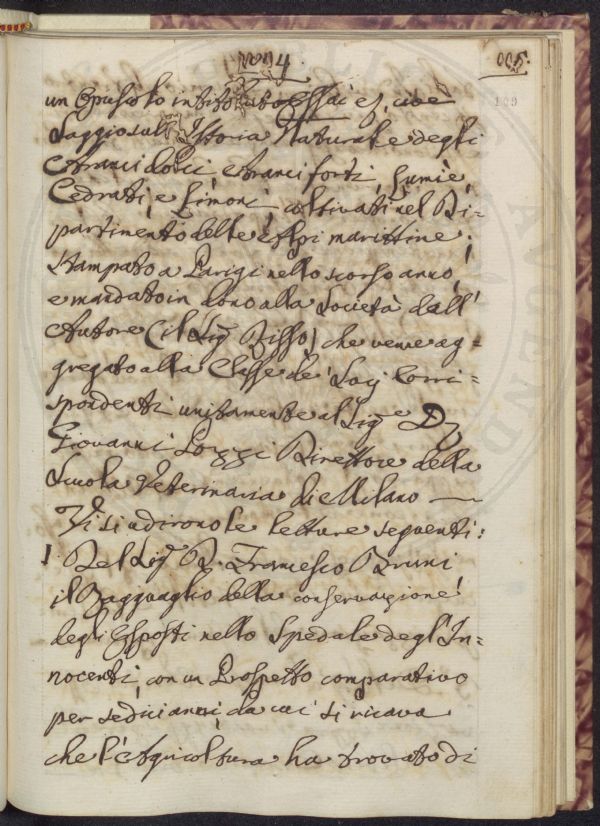 4
995.
109
un Opuscolo intitolato Essai es, cioè
Saggio sull' Istoria Naturale degli
Aranci dolci Aranci forti, Lumie,
Cedrati, e Limoni, coltivati nel Di=
partimento delle Alpi marittime.
Stampato a Parigi nello scorso anno,
e mandato in dono alla Società dall'
Autore (il Sig.r Risso) che venne ag=
gregato alla Classe de' Soci Corri=
spondenti unitamente al Sig.re D.
Giovanni Pozzi Direttore della
Scuola Veterinaria di Milano —
Vi si udirono le letture seguenti:
1. Del Sig.r D. Francesco Bruni
il Ragguaglio della conservazione
degli Esposti nello Spedale degl'In=
nocenti, con un Prospetto comparativo
per sedici anni, da cui si ricava
che l'Agricoltura ha trovato di